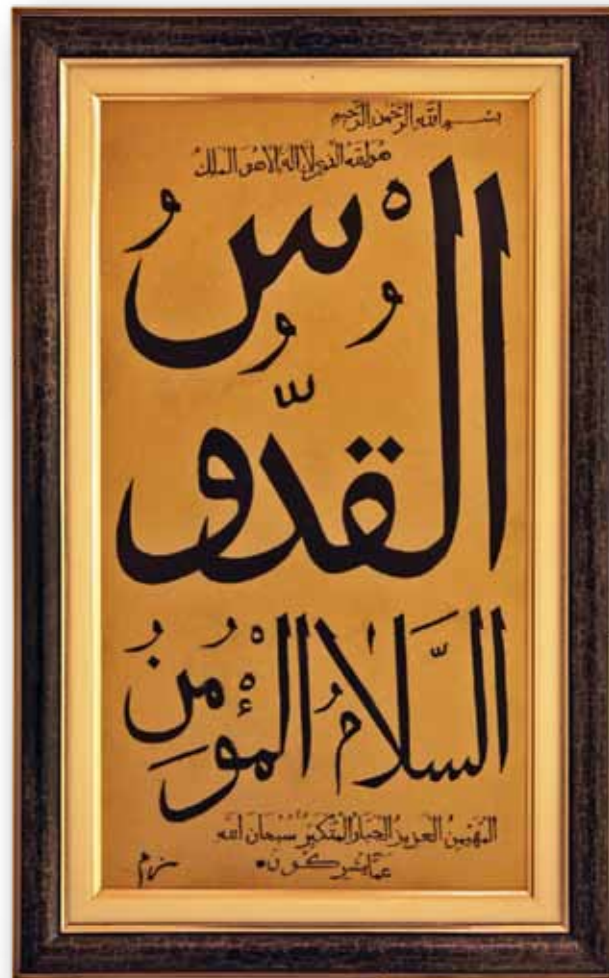 بسم الله الرحمن الرحيم
هو الله الذي لا اله الا هو الملك
الْقُدُّوسُ
السَّلَامُ الْمُؤْمِنُ
المهيمن العزيز الجبار المتكبر سبحان الله
عما يشركون